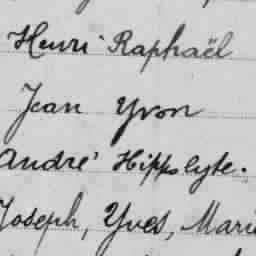 Henri Raphaël
Jean Yvon
André Hippolyte.
Joseph, Yves, Marie